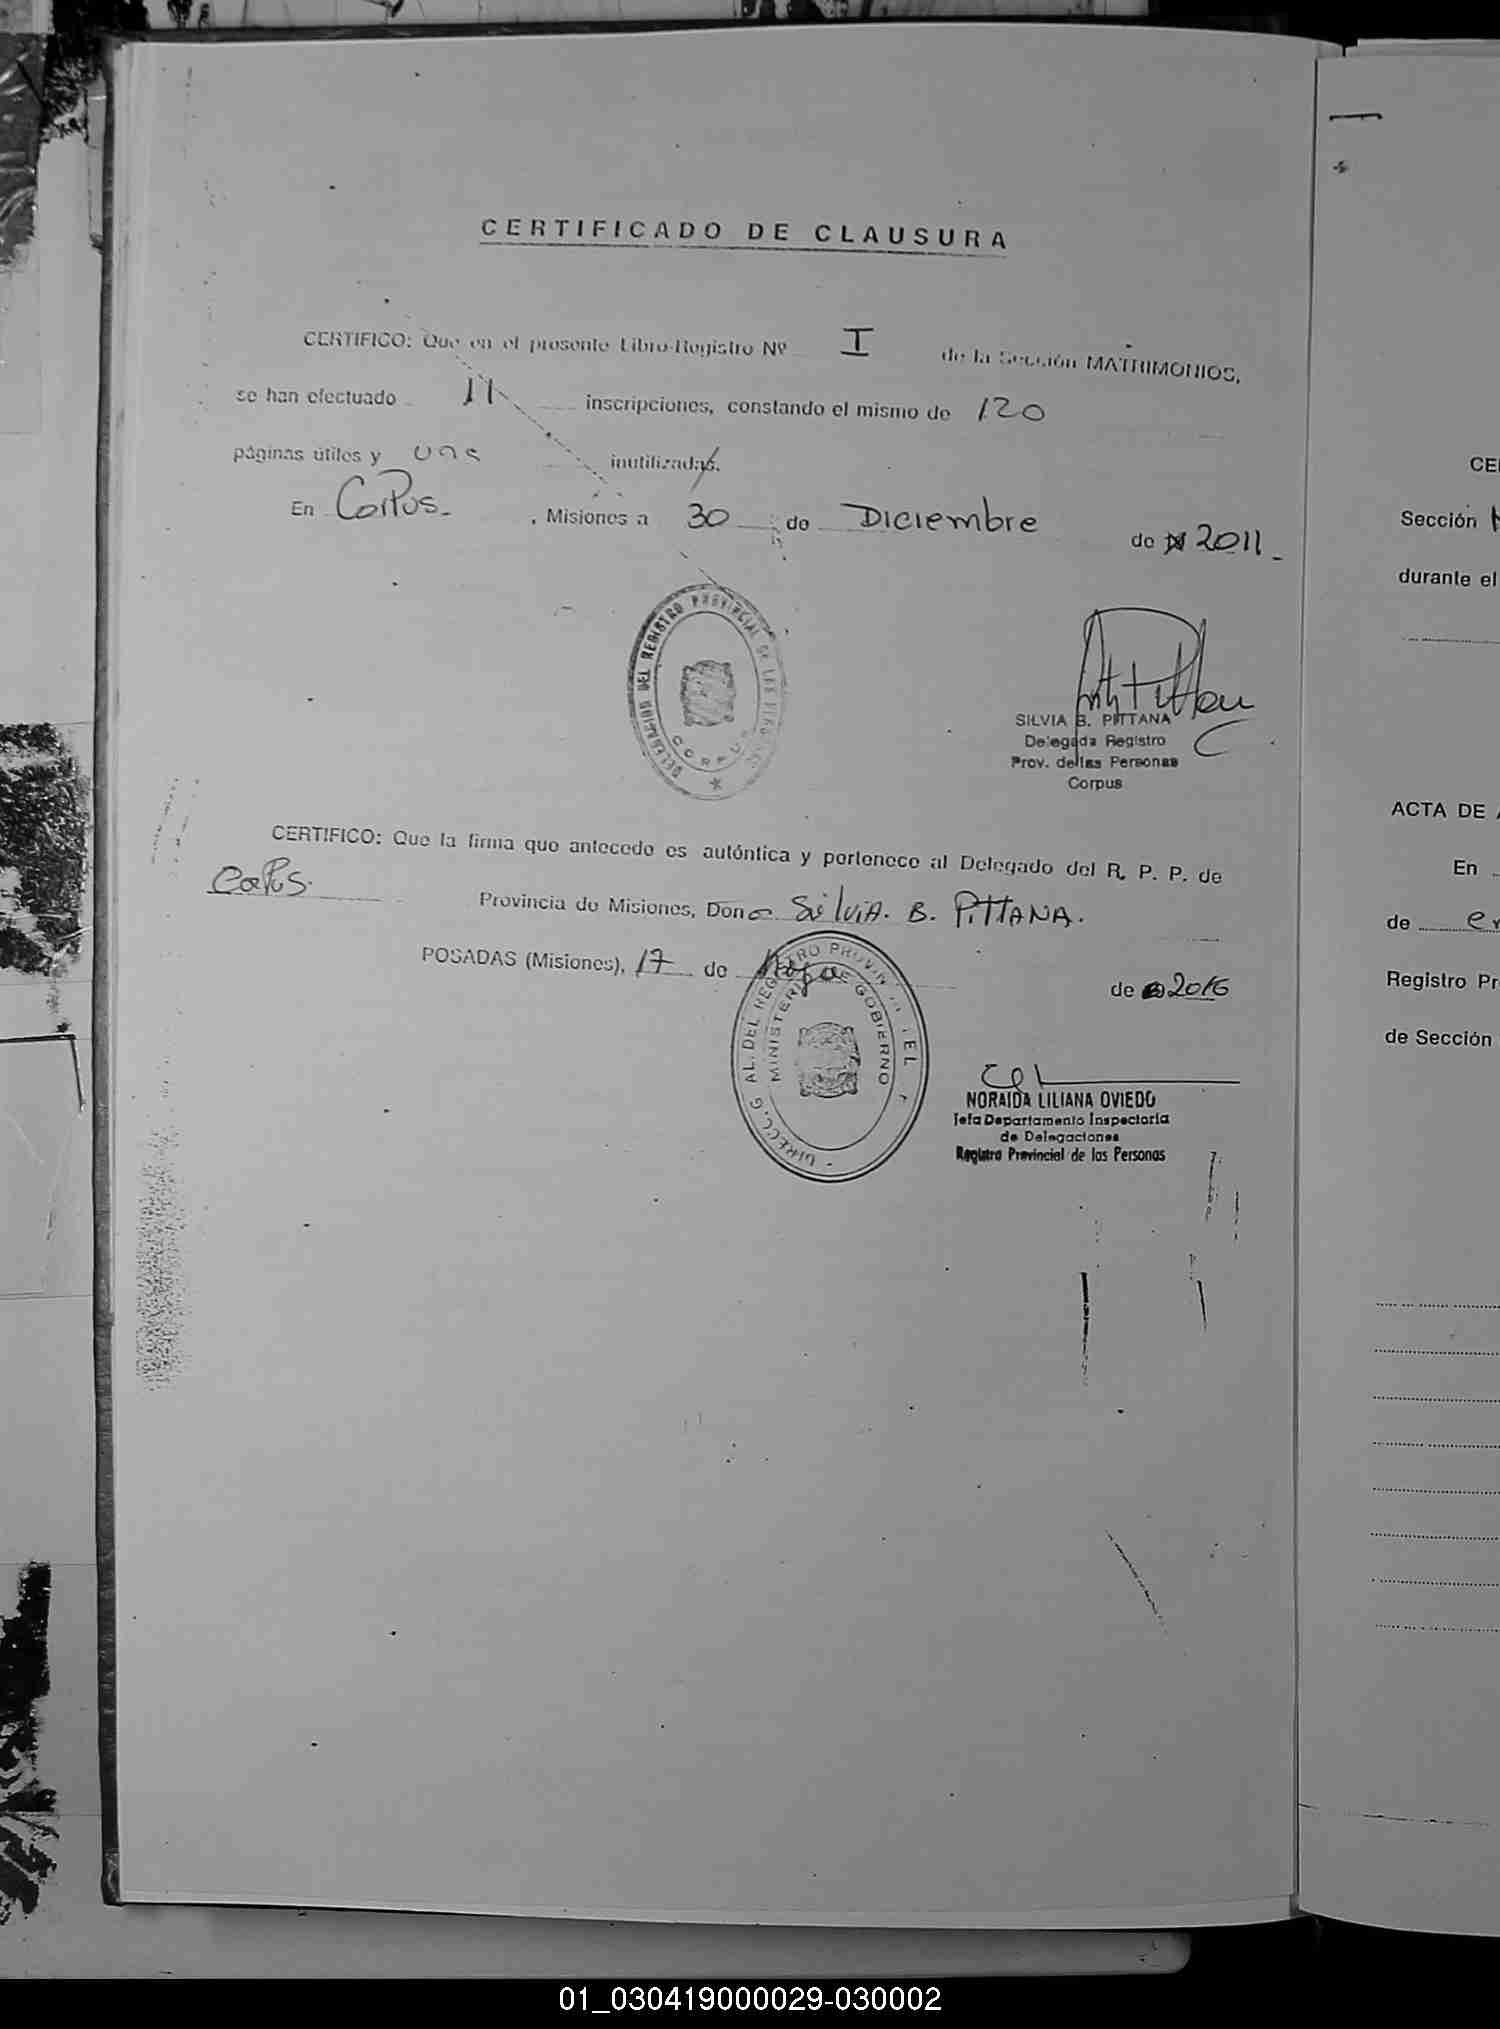 CERTIFICADO DE CLAUSURA
CERTIFICO: Que en el presente Libro-Registro Nº I de la Sección MATRIMONIOS,
se han efectuado 11 inscripciones, constando el mismo de 120
páginas útiles y una inutilizadas.
En Corpus. , Misiones a 30 de Diciembre de 2011
DELEGACION DEL REGISTRO PROVINCIAL DE LAS PERSONAS
CORPUS
SILVIA B. PITTANA
Delegada Registro
Prov. de las Personas
Corpus
CERTIFICO: Que la firma que antecede es auténtica y pertenece al Delegado del R. P. P. de
Corpus. Provincia de Misiones, Don a Silvia. B. PITTANA.
POSADAS (Misiones), 17 de de 2016
MINISTERIO DE GOBIERNO
NORAIDA LILIANA OVIEDO
Jefa Departamento Inspectoría
de Delegaciones
Registro Provincial de las Personas
CE
Sección
durante el
ACTA DE
En
de
Registro Pr
de Sección
01_030419000029-030002